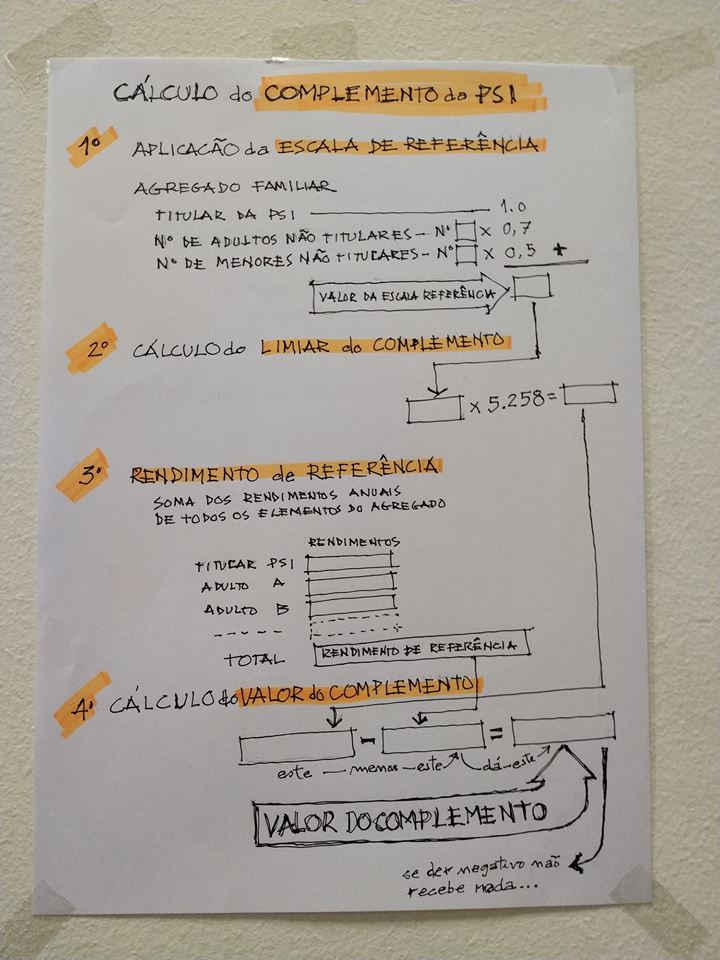 CÁLCULO do COMPLEMENTO da PSI
1º APLICAÇÃO da ESCALA DE REFERÊNCIA
AGREGADO FAMILIAR
TITULAR DA PSI 1.0
Nº DE ADULTOS NÃO TITULARES - Nº x 0,7
Nº DE MENORES NÃO TITULARES - Nº x 0,5 +
VALOR DA ESCALA REFERÊNCIA
2º CÁLCULO do LIMIAR do COMPLEMENTO
x 5.258 =
3º RENDIMENTO de REFERÊNCIA
SOMA DOS RENDIMENTOS ANUAIS
DE TODOS OS ELEMENTOS DO AGREGADO
RENDIMENTOS
TITULAR PSI
ADULTO A
ADULTO B
-----
TOTAL RENDIMENTO DE REFERÊNCIA
4º CÁLCULO do VALOR do COMPLEMENTO
- =
este - menos - este dá-este
VALOR DO COMPLEMENTO
se der negativo não
recebe nada...